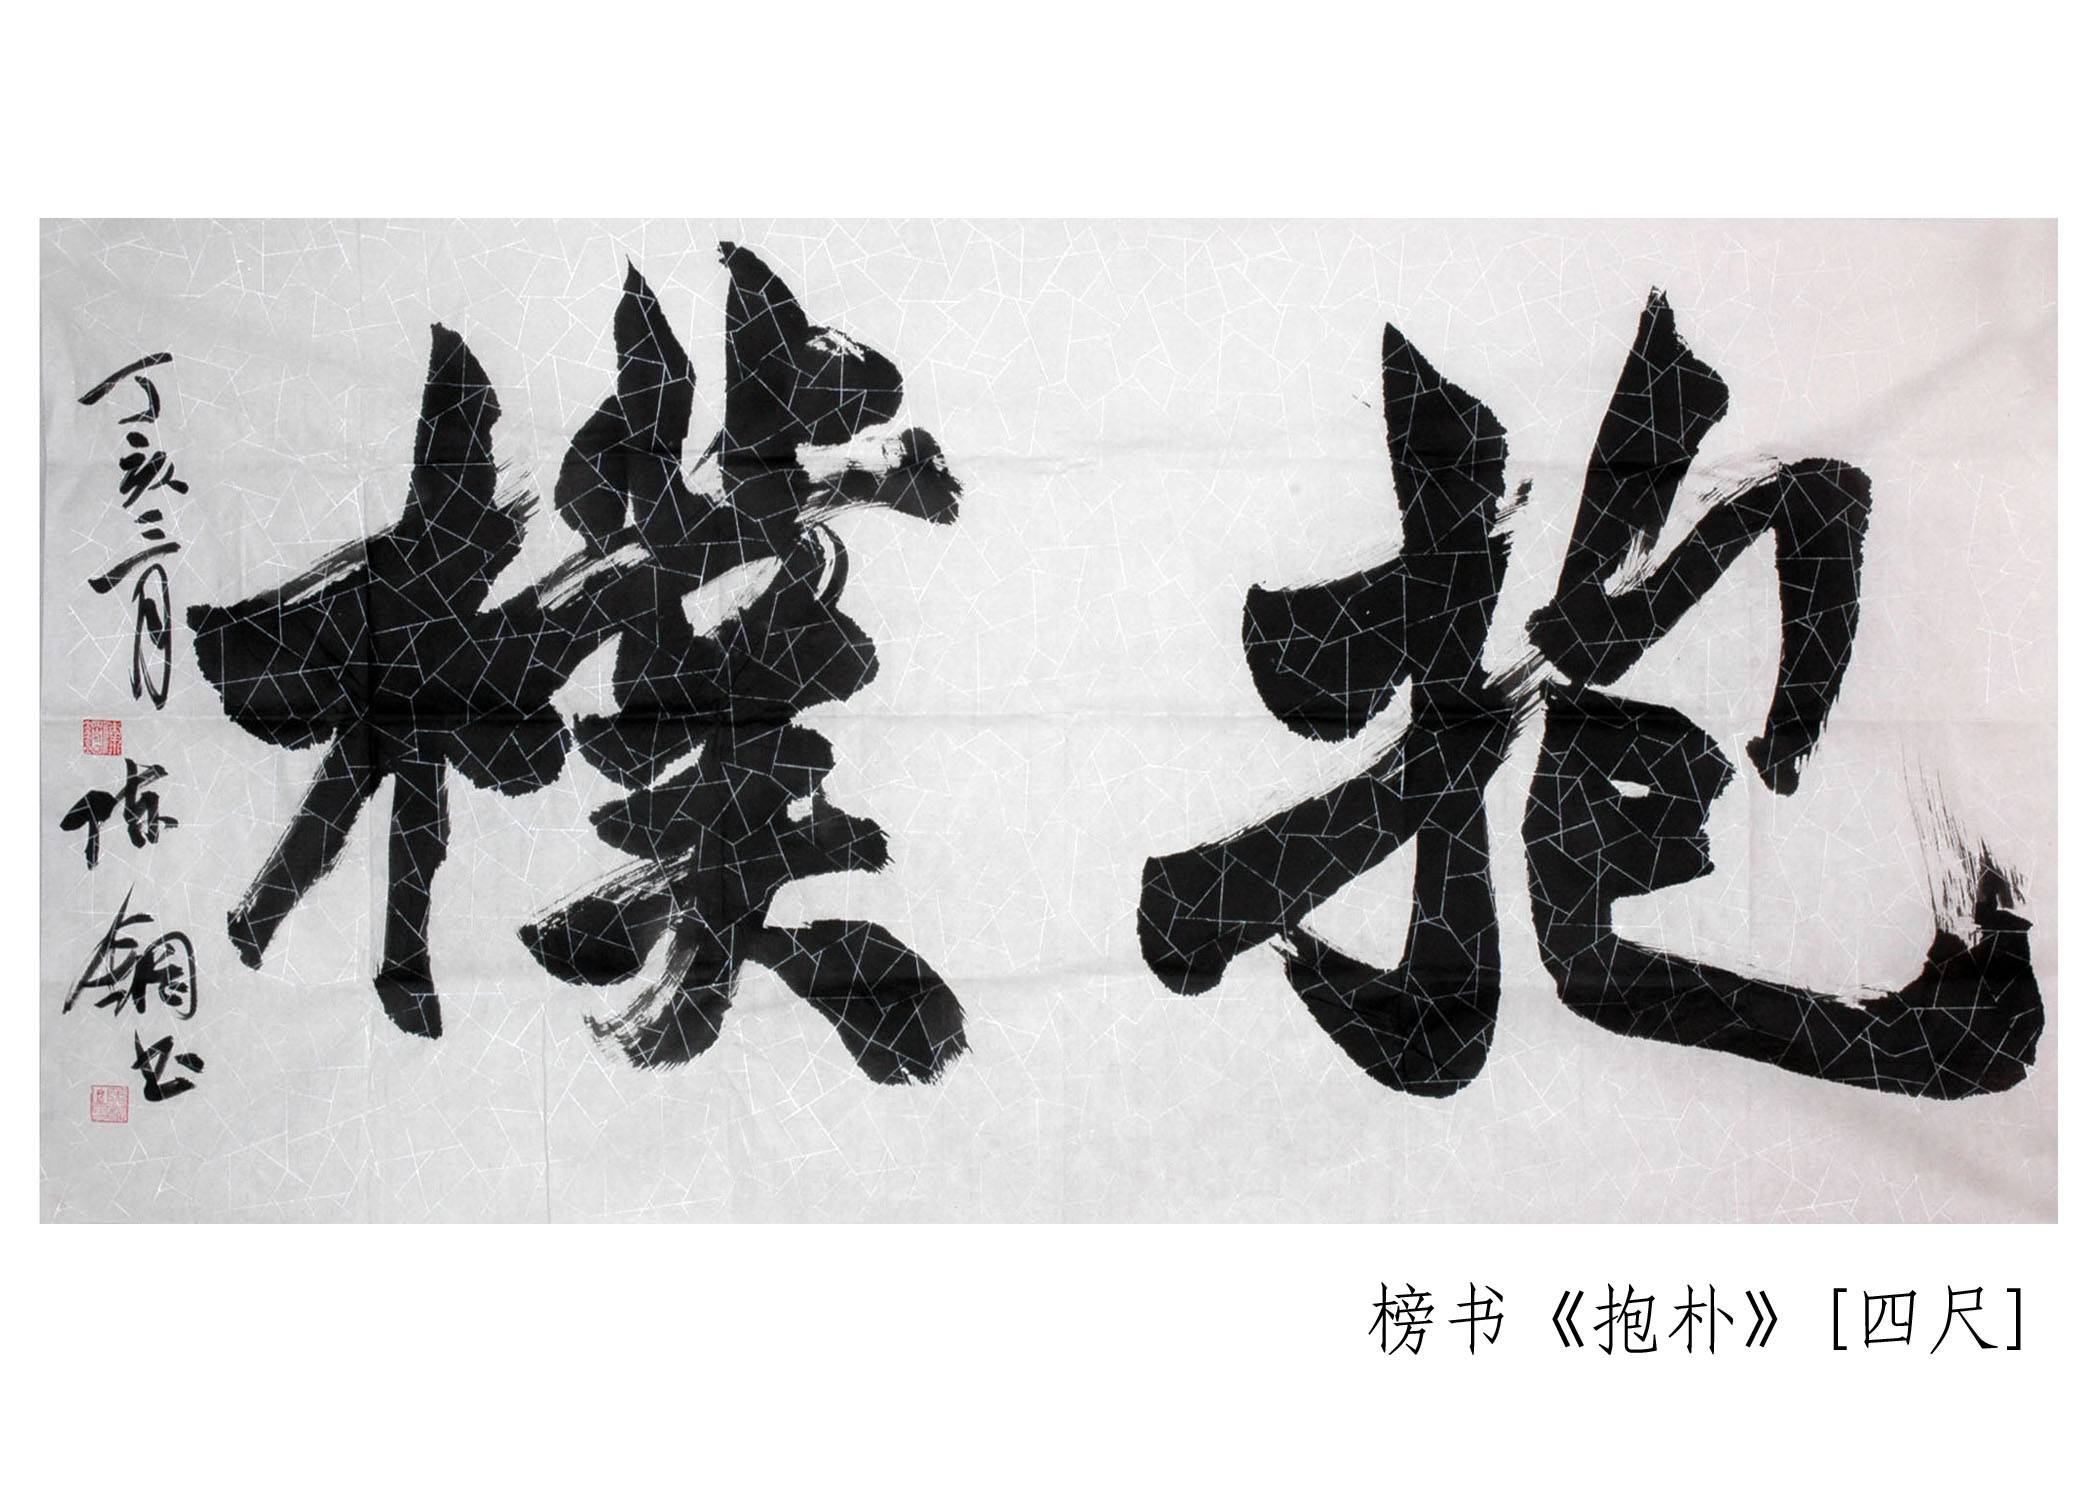 抱樸
丁亥三月
陈钢书
榜书《抱朴》[四尺]